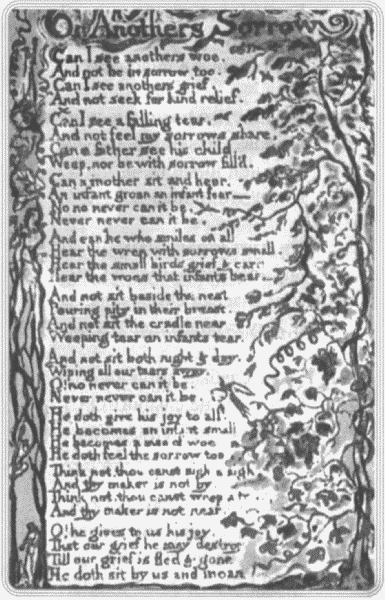 On Anothers Sorrow
Can I see anothers woe.
And not be in sorrow too.
Can I see anothers grief
And not seek for kind relief.
Can I see a falling tear.
And not feel my sorrows share,
Can a father see his child,
Weep, nor be with sorrow fill'd.
Can a mother sit and hear.
An infant groan an infant fear
No no never can it be.
Never never can it be.
And can he who smiles on all
Hear the wren with sorrows small.
Hear the small birds grief & care
Hear the woes that infants bear
And not sit beside the nest
Pouring pity in their breast.
And not sit the cradle near
Weeping tear on infants tear.
And not sit both night & day.
Wiping all our tears away.
O! no never can it be.
Never never can it be.
He doth give his joy to all.
He becomes an infant small
He becomes a man of woe
He doth feel the sorrow too.
Think not, thou canst sigh a sigh
And thy maker is not by.
Think not, thou canst weep a
And thy maker is not near.
O! he gives to us his joy.
That our grief he may destroy
Till our grief is fled & gone
He doth sit by us and moan